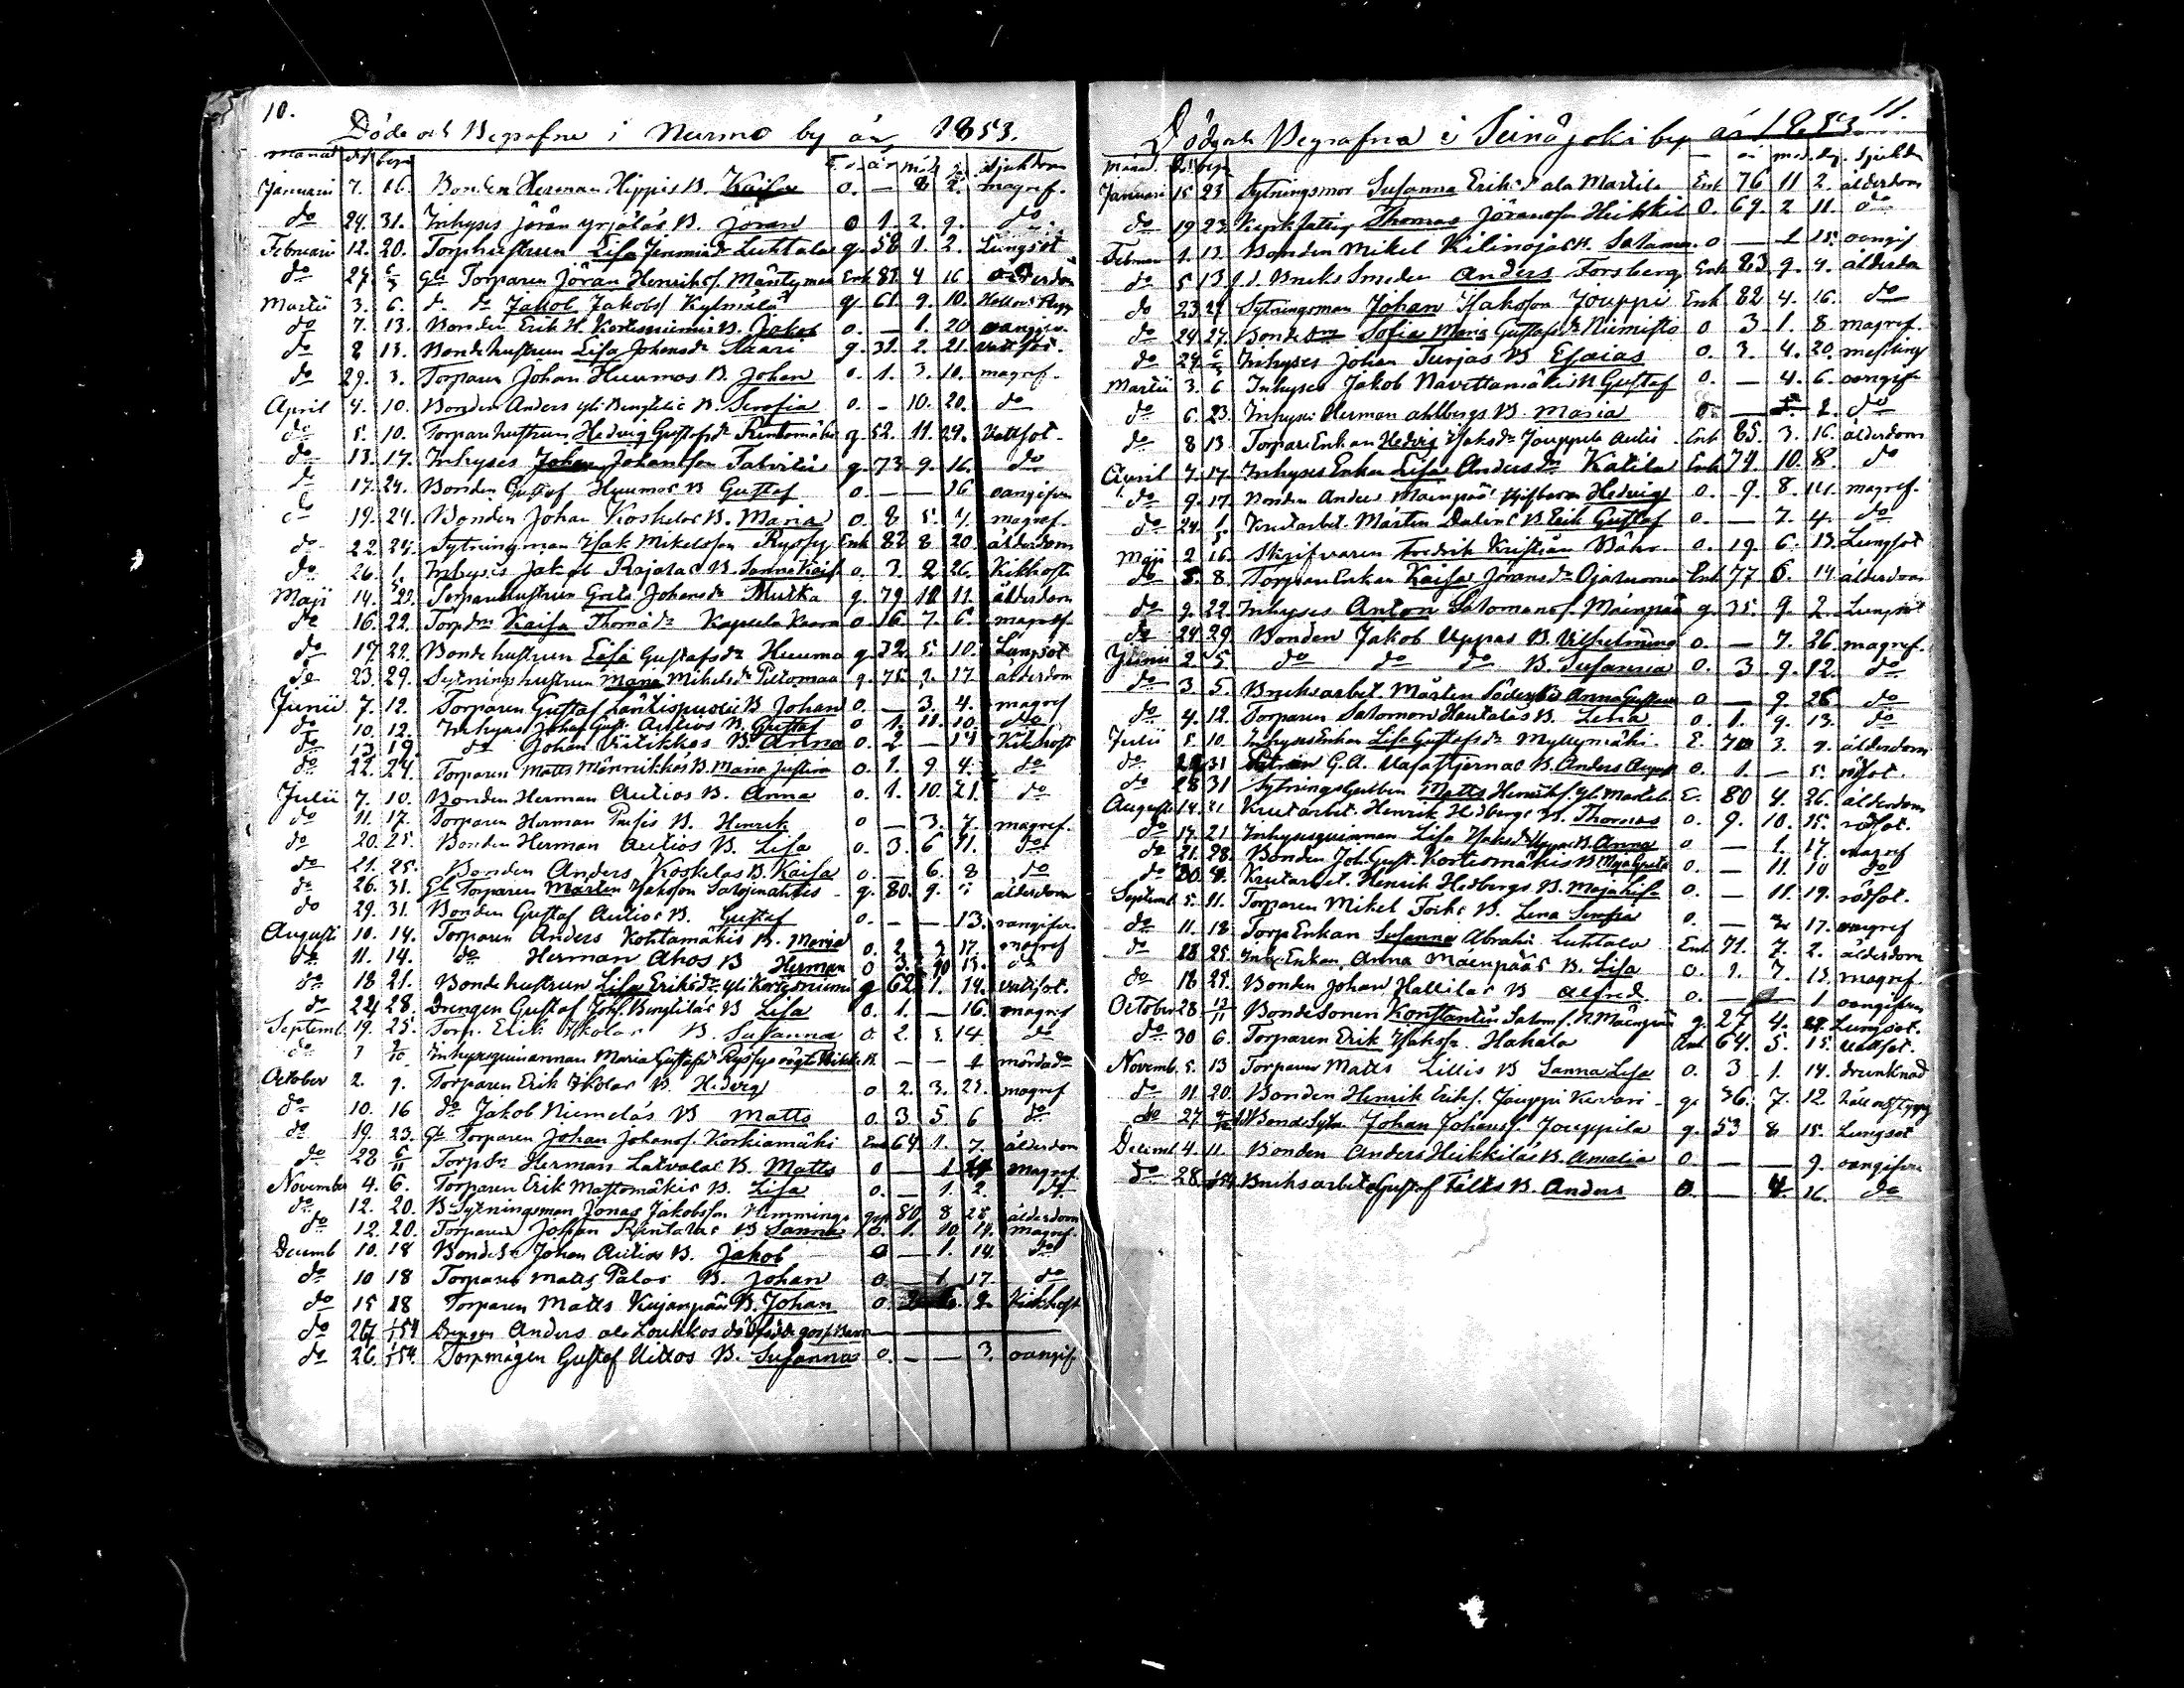 10.
Döde och Begrafne i Nurmo by år 1853.
månad död begr år mån sjukdom
Januari 7. 16. Bonden Herman Hippis B. Kaisa o. — 8 2. magref.
do 24. 31. Inhyses Jöran yrjäläs B. Jöran o 1. 2. 9. do
Februari 12. 20. Torp hustrun Lisa Jeremiädr Luhtala g. 58 1. 2. Lungsot
do 27. 6/3 Gle Torparen Jöran Henriks. Mäntymaa Enk 81. 4 16 ålderdom
Martii 3. 6. do do Jakob Jakobs Kylmälä g. 61. 9. 10. Håll och Stygg
do 7. 13. Bonden Erik H. Kortesniemis B. Jakob o. — 1. 20 oangifven
do 8 13. Bonde hustrun Lisa Johansdr Saari g. 31. 2. 21. vattsot.
do 29. 3. Torparen Johan Huumos B. Johan o. 1. 3. 10. magref.
April 4. 10. Bonden Anders yli Bengtilis B. Serafia o. - 10. 20. do
do 5. 10. Torpare hustrun Hedvig Gustafsdr Rintamäki g. 52. 11. 29. Vattsot.
do 13. 17. Inhyses Johan Johansson Talvitie g. 73. 9. 16. do
do 17. 24. Bonden Gustaf Huumos B Gustaf o. — — 16 oangifven
do 19. 24. Bonden Johan Koskelas B. Maria o. 8 5. 4. magref.
do 22. 24. Sytningsman Isak Mikelsson Ryssy Enk 82 8 20. ålderdom
do 26. 1. Inhyses Jakob Rajalas B. Sanna Kaisa o. 3. 2 26. Kikhosta
Maji 14. 22. Torparehustrun Greta Johansdr Mutka g. 79. 11. 11. ålderdom
do 16. 22. Torpdrn Kaisa Thomädr Kapula Kaara o 16 7. 6. magref.
do 17 22. Bonde hustrun Lisa Gustafsdr Huumo g. 32. 5. 10. Lungsot
do 23. 29. Sytnings hustrun Maria Mikelsdr Pietomaa g. 75. 2. 17 ålderdom
Junii 7. 12. Torparen Gustaf Länsipuros B. Johan o. — 3. 4. magref
do 10. 12. Inhyses Johan Gust. Autios B. Gustaf o 1. 11. 10. do
do 13. 19. do Johan Viitikkos B. Anna o. 2 — 14 Kikhosta
do 22. 24. Torparen Matts Männikkös B. Maria Justina o. 1. 9 4. do
Julii 7. 10. Bonden Herman Autios B. Anna o. 1. 10. 21. do
do 11. 17. Torparen Herman Prusis B. Henrik o — 3. 7. magref.
do 20. 25. Bonden Herman Autios B. Lisa o. 3. 6 11. do
do 21. 25. Bonden Anders Koskelas B. Kaisa o. — 6. 8 do
do 26. 31. Gl. Torparen Mårten Isaksson Sarjinahtis g. 80. 9. ålderdom
do 29. 31. Bonden Gustaf Autios B. Gustaf o. — — 13. oangifven
Augusti 10. 14. Torparen Anders Kohtamäkis B. Maria o. 2. 3. 17. magref
do 11. 14. do Herman Ahos B Herman o 3. 10 15. do
do 18 21. Bonde hustrun Lisa Eriksdr yli Kortesniemi g 62. 1. 14. vattsot.
do 24 28. Drengen Gustaf Joh. Bengtiläs B Lisa o. 1. — 16. magref
Septemb. 19. 25. Torp. Erik Ikolas B. Susanna o. 2. 5. 14. do
do Inhysesquinnan Maria Gustafsdr Ryssys oägta B. — — mördad
October 2. 9. Torparen Erik Ikolas B. Hedvig o 2. 3. 25. magref
do 10. 16 do Jakob Niemeläs B Matts o. 3. 5. 6 do
do 19. 23. Gle Torparen Johan Johans. Korkiamäki Enk 64 1. 7. ålderdom
do 28 6/11 Torp Herman Latvalas B. Matts o — 1 magref.
November 4. 6. Torparen Erik Mattomäkis B. Lisa o. — 1. 2. do
do 12. 20. B. Sytningsman Jonas Jakobsson Hemminge 80 8 28 ålderdom
do 12. 20. Torparen Johan Rintalas B Sanna o. 1. 10. 14. magref.
Decemb 10. 18 Bonden Johan Autios B. Jakob o — 1. 14. do
do 10 18 Torparen Matts Palos B. Johan o. — 1. 17. do
do 15 18 Torparen Matts Kujanpääs B. Johan o. 2. Kikhosta
do 26 1/1 54 Drengen Anders ala Loukkos dödfödde goss Barn
do 26. 1/1 54. Torpmågen Gustaf Uittos B. Susanna o. — — 3. oangif.
11.
Döde och Begrafna i Seinäjoki by år 1853.
månad. död begr år mån. dag. sjukdom
Januari 15 23 Sytningsmor Susanna Eriksd ala Martila Enk 76 11 2. ålderdom
do 19 23 Kyrkfattig Thomas Jöransson Heikkilä o. 69. 2 11. do
Februari 1. 13. Bonden Mikel Kilinojas B. Salomon o — 1 25. oangif
do 5 13 f.d. Bruks Smeden Anders Forsberg Enk 83. 9. 4. ålderdom
do 23 24 Sytningsman Johan Isaksson Jouppi Enk 82 4. 16. do
do 24 27. Bonde drn Sofia Maria Gustafsdr Niemistö o 3 1. 8 magref.
do 24. 6/3 Inhyses Johan Turjas B Esaias o. 3. 4. 20. messling
Martii 3. 6 Inhyses Jakob Navettamäkis B. Gustaf o. — 4. 6. oangifven
do 6. 23. Inhyses Herman Ahlbergs B. Maria o. — 2. do
do 8 13. Torpare Enkan Hedvig Isaksdr Jouppila Autio Enk 85. 3. 16. ålderdom
April 7. 17. Inhyses Enkan Lisa Andersdr Katila Enk 74. 10. 8. do
do 9. 17 Bonden Anders Mäenpääs styfbarn Hedvig o. 9. 8. 14. magref.
do 24. 1/5 Krutarbet. Mårten Dalins B Erik Gustaf o. — 7. 4. do
Maji 2. 16. Skrifvaren Fredrik Kristian Bähr o. 19. 6. 13. Lungsot
do 5. 8. Torpare Enkan Kaisa Jöransdr Ojaluoma Enk 77 6. 14 ålderdom
do 9. 22. Inhyses Anton Salomons. Mäenpää g. 35. 9. 2. Lungsot
do 24 29. Bonden Jakob Uppas B. Vilhelmina o. — 7. 26 magref.
Junii 2 5 do do do B. Susanna o. 3 9. 12. do
do 3. 5. Bruksarbet. Mårten Söderbys Anna Gustava o — 9. 26. do
do 4. 12. Torparen Salomon Hautalas B. Lena o. 1. 9. 13. do
Julii 5. 10. Inhyses Enkan Lisa Gustafsdr Myllymäki E. 70 3. 9. ålderdom
do 31 G.A. Vasastjernas B. Anders August o. 1. — 5. rödsot.
do 28 31 Sytnings Gubben Matts Henriks. yli Martila E. 80 4. 26. ålderdom
Augusti 14. 21 Krutarbet. Henrik Hedbergs B. Thomas o. 9. 10. 15. rödsot.
do 17. 21 Inhysesquinnan Lisa Isaksdr Uppas B. Anna o — 1. 17. magref
do 21. 28. Bonden Joh. Gust. Kortesmäkis B. Maja Greta o. — 11. 10 do
do 20 4. Krutarbet. Henrik Hedbergs B. Maja Lisa o. — 11. 19. rödsot.
Septemb. 5. 11. Torparen Mikel Tocks B. Lena Serafia o. — 2. 17. magref
do 11. 18. Torp Enkan Susanna Abrah. Luhtala Enk 71. 7. 2. ålderdom
do 18 25. Inh. Enkan Anna Mäenpääs B. Lisa o. 1. 7. 13. magref.
do 18 25. Bonden Johan Hallilas B Alfred o. — — 1. oangifven
October 28 13/11 Bondesonen Konstantin Salom. N. Mäenpää g. 27 4. Lungsot.
do 30 6. Torparen Erik Isakss. Hakala Enk 64. 5. 15. Vattsot.
Novemb. 5. 13 Torparen Matts Lillis B Sanna Lisa o. 3 1. 14. drunknad
do 11 20. Bonden Henrik Eriks. Jouppi Kuvari g. 36. 7. 12. håll och stygg
do 27 Bonde Sytn. Johan Johans. Jouppila g. 53 8 15. Lungsot
Decemb. 4. 11. Bonden Anders Heikkiläs B. Amalia o. — — 9. oangifven
do 28 1/1 54 Bruksarbet. Gustaf Fälts B. Anders o. — 4 16. do